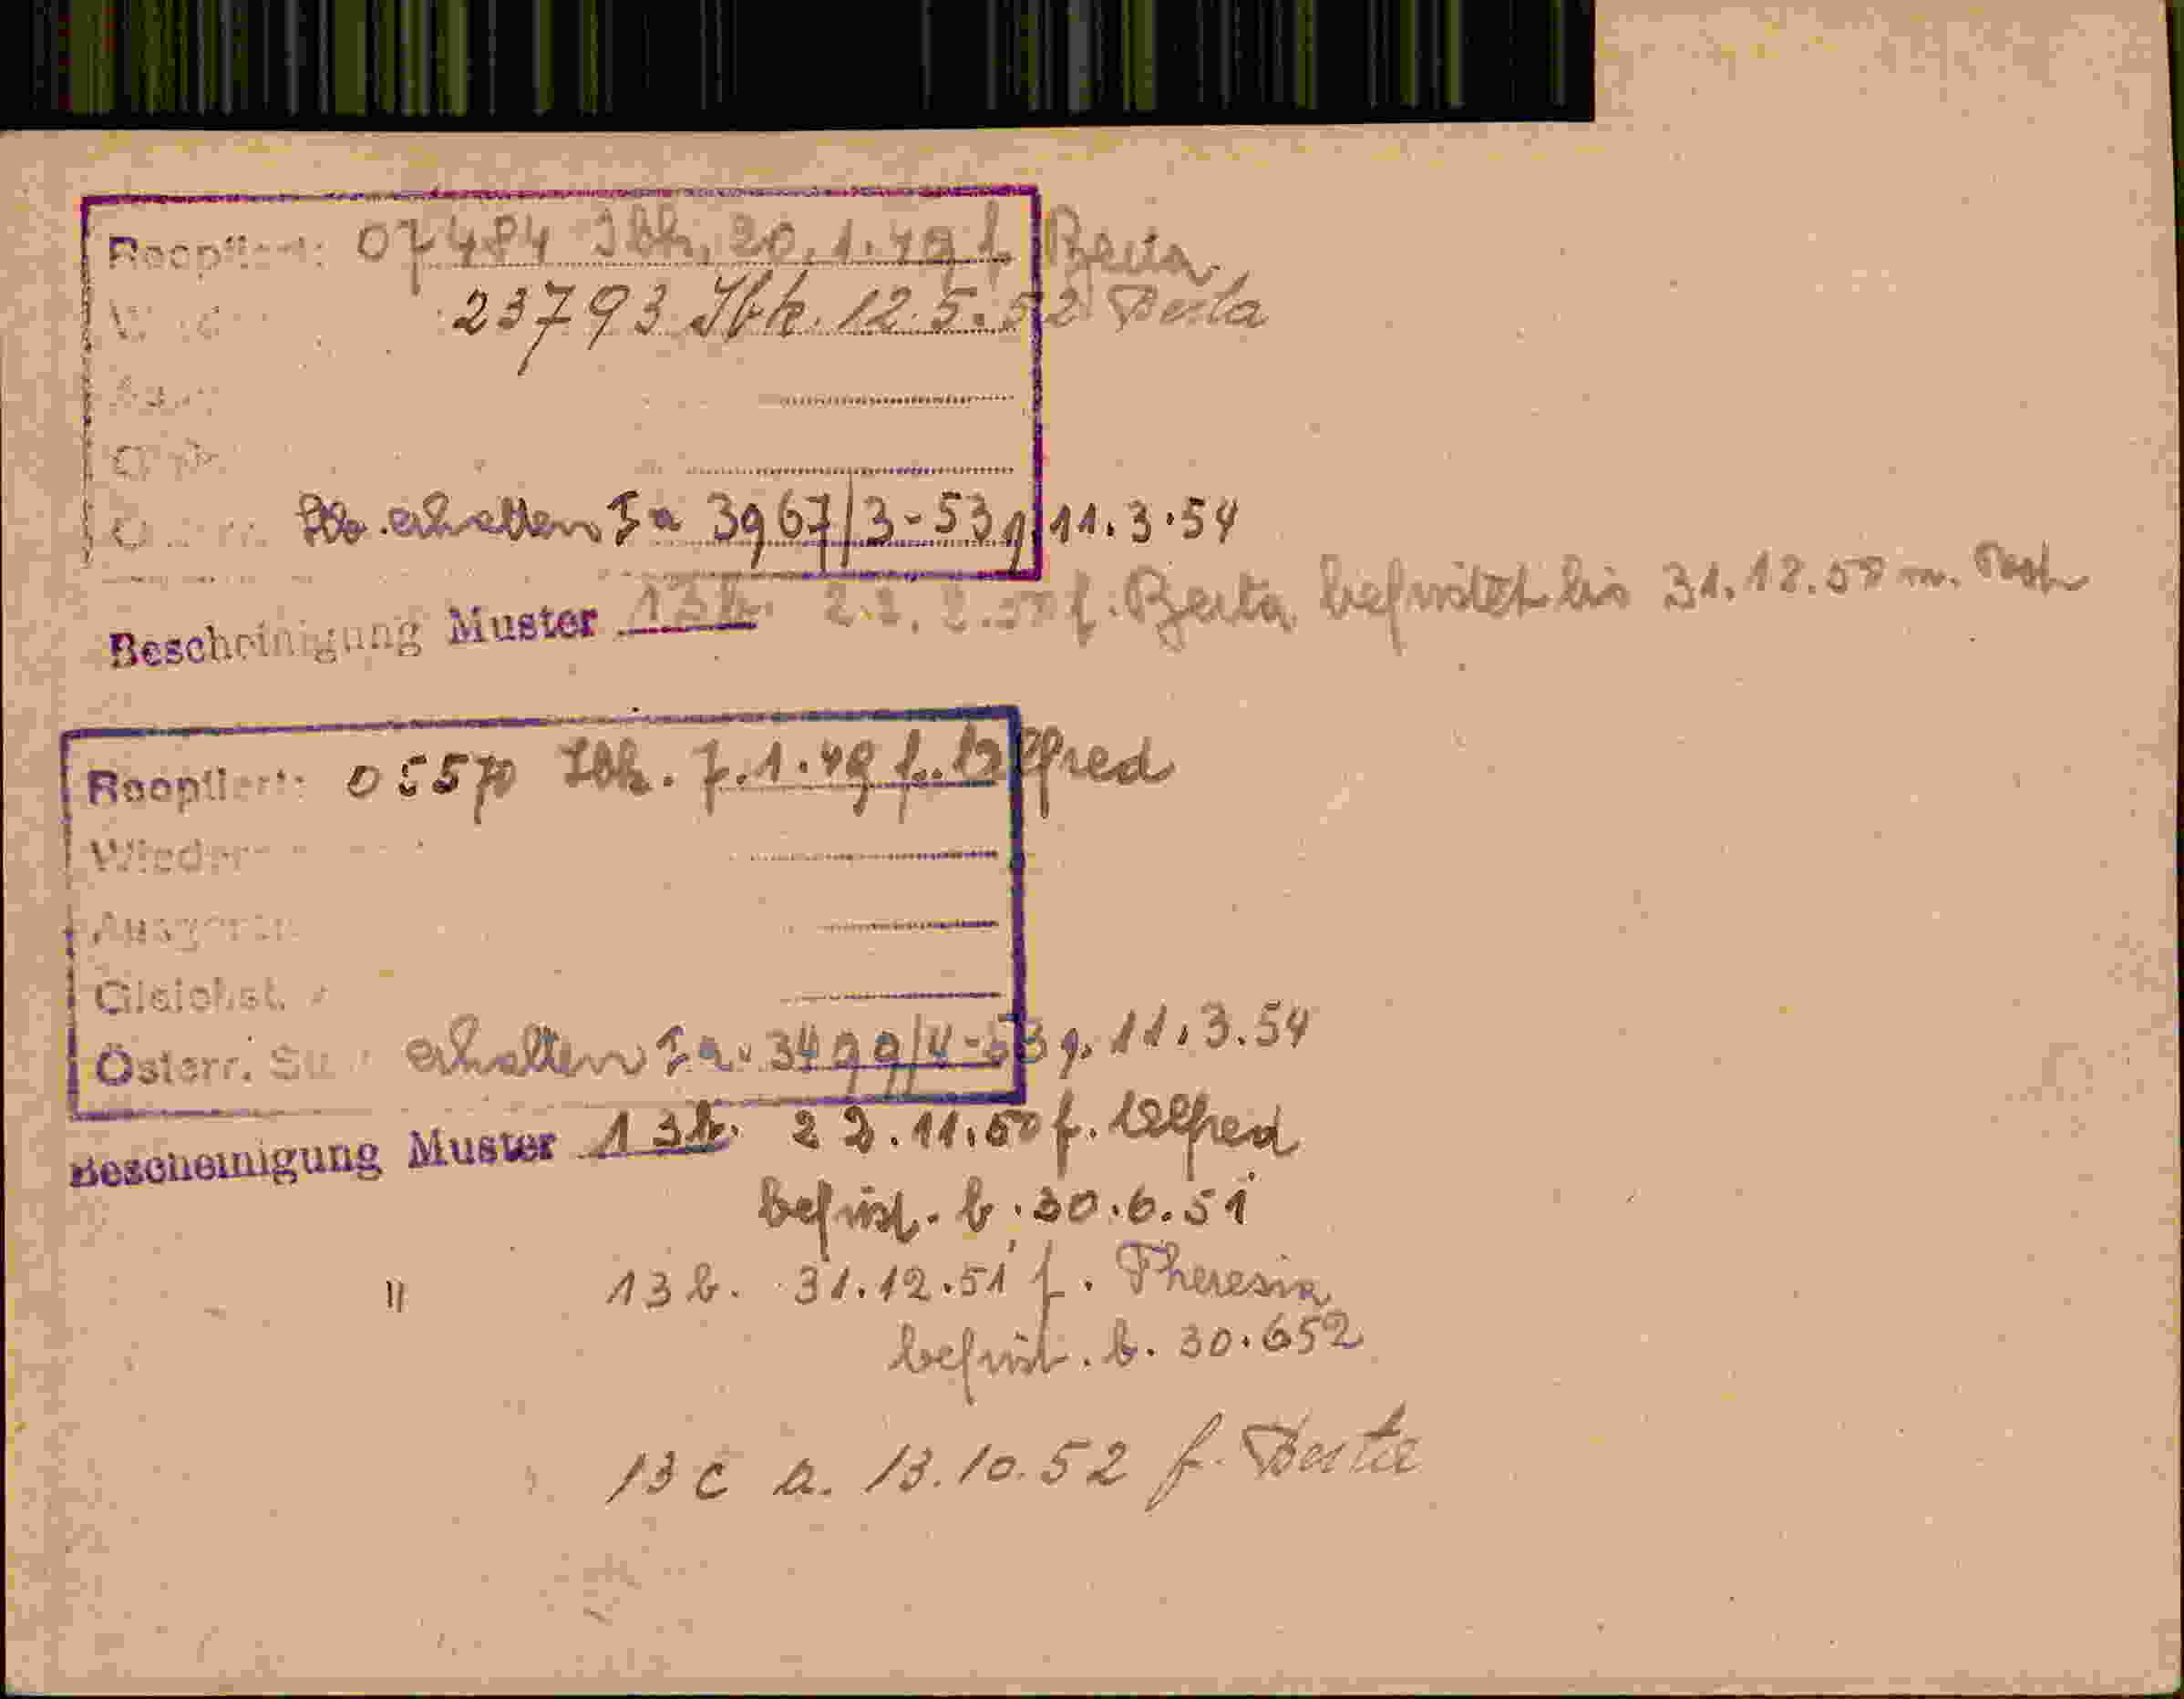 Reoptiert: 07484 Ibk. 20.1.49 f. Berta
23793 Ibk. 12.5.52 Berta
Stb. erhalten Ia 3967/3-53 g. 11.3.54
Bescheinigung Muster 13b. f. Berta befristet bis 31.12.50
Reoptiert: 05570 Ibk. 7.1.49 f. Alfred
Wieder
Gleichst.
Österr. St. erhalten Ia. 3499/4-53 g. 11.3.54
Bescheinigung Muster 13b. 22.11.50 f. Alfred
befrist. b. 30.6.51
" 13b. 31.12.51 f. Theresia
befrist. b. 30.652
13c a. 13.10.52 f. Berta